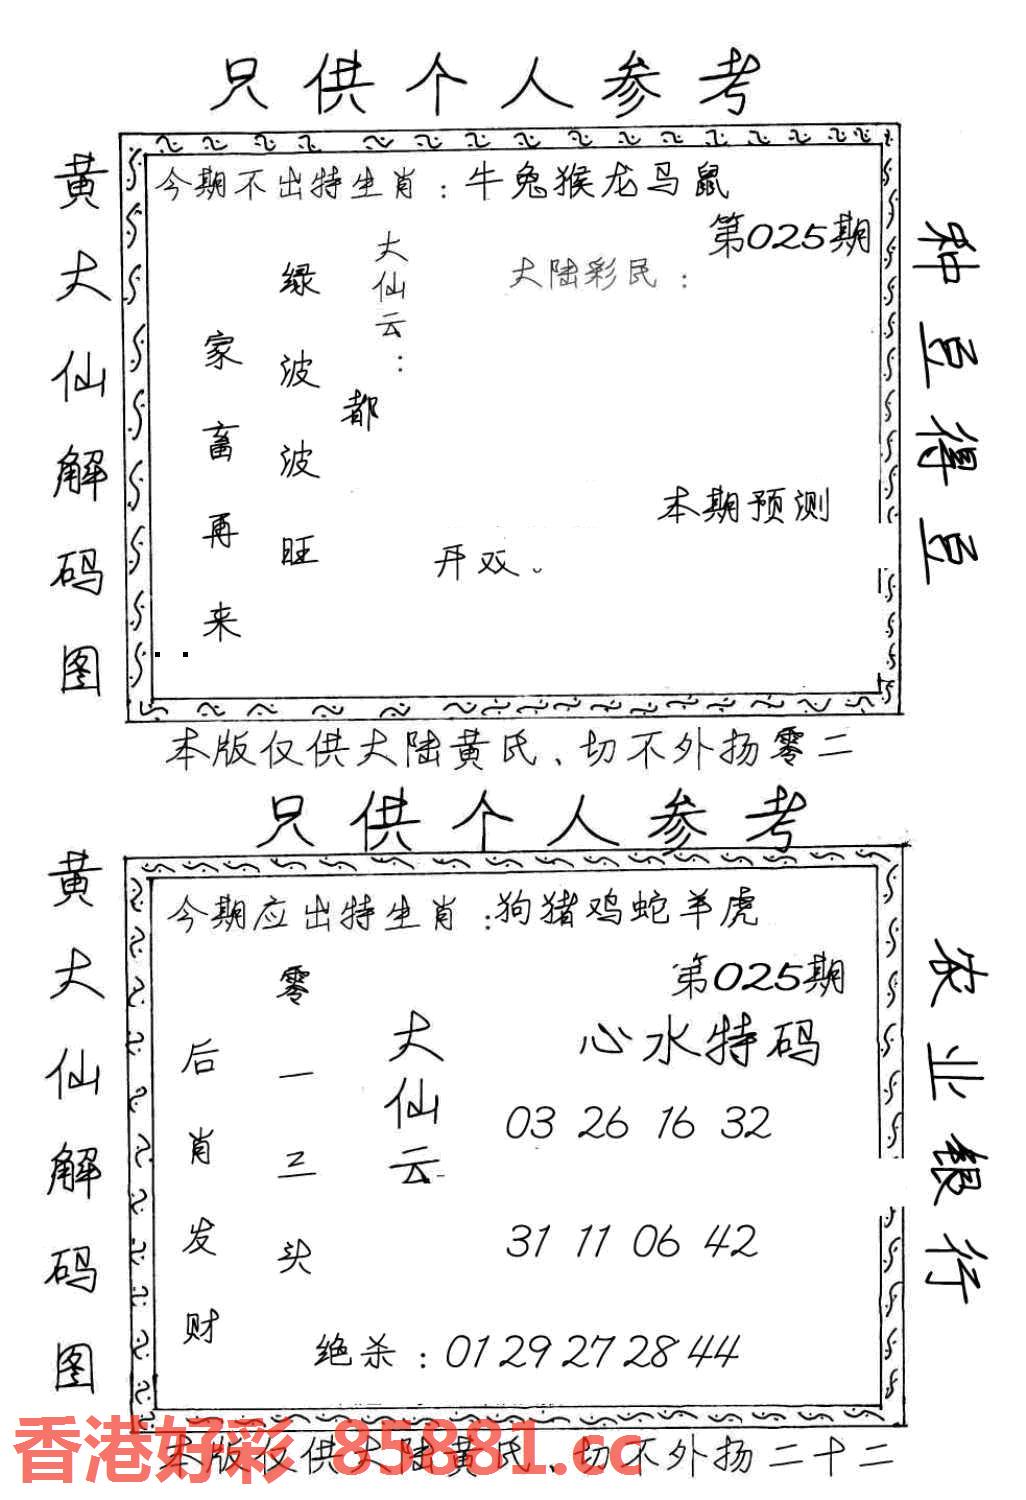 只供个人参考
黄大仙解码图
今期不出特生肖：牛兔猴龙马鼠
第025期
大陆彩民：
大仙云：
都
绿波波旺
家畜再来
本期预测
开双。
种豆得豆
本版仅供大陆黄氏、切不外扬零二
只供个人参考
黄大仙解码图
今期应出特生肖：狗猪鸡蛇羊虎
第025期
心水特码
大仙云
零一三头
后肖发财
03 26 16 32
31 11 06 42
绝杀：01 29 27 28 44
农业银行
本版仅供大陆黄氏、切不外扬二十二
香港好彩 85881.cc